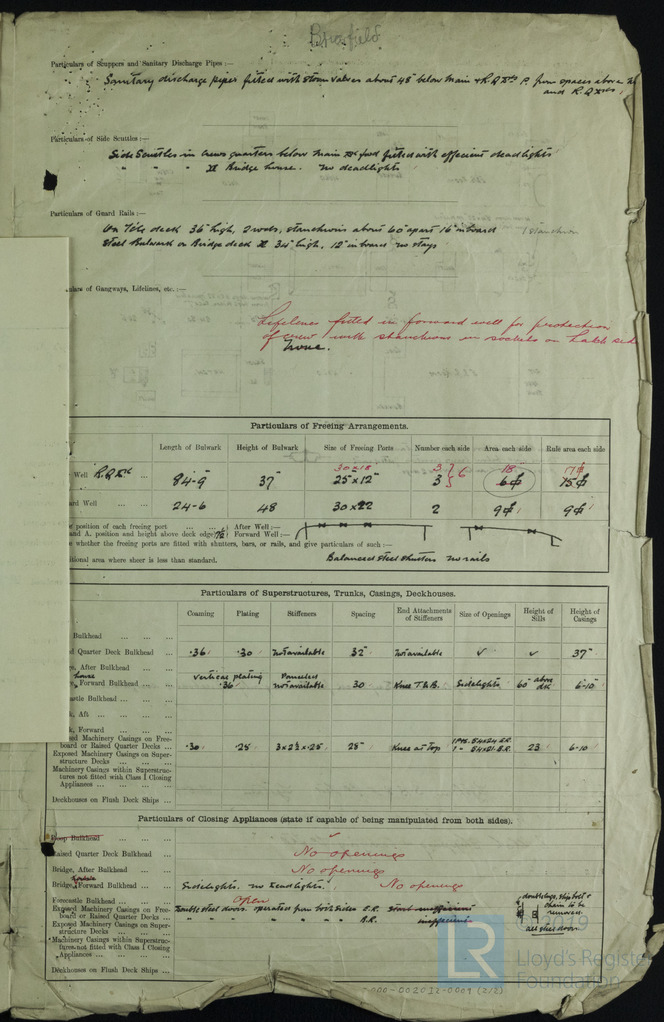 Particulars of Scuppers and Sanitary Discharge Pipes :—
Sanitary discharge pipes fitted with storm valves about 48" below main & R.Q.Dk P. from spaces above
and R.Q.
Particulars of Side Scuttles :—
Side Scuttles in crews quarters below main Dk fwd fitted with efficient deadlights
" " " Bridge house. No deadlights
Particulars of Guard Rails :—
On Fcle deck 36" high, 2 rods, stanchions about 60" apart 16" inboard
Steel Bulwark on Bridge deck 34" high, 12" inboard no stays
ulars of Gangways, Lifelines, etc. :—
Lifelines fitted in forward well for protection
of crew with stanchions in sockets on hatch side
None.
Particulars of Freeing Arrangements.
Length of Bulwark Height of Bulwark Size of Freeing Ports Number each side Area each side Rule area each side
30 x 18 3 18 17
Well R.Q.Dk 84-9" 37" 25 x 12" 3 6 6 15
ard Well 24-6 48 30 x 22 2 9 9
position of each freeing port After Well :—
and A. position and height above deck edge Forward Well :—
whether the freeing ports are fitted with shutters, bars, or rails, and give particulars of such :—
Balanced steel shutters no rails
itional area where sheer is less than standard.
Particulars of Superstructures, Trunks, Casings, Deckhouses.
Coaming Plating Stiffeners Spacing End Attachments of Stiffeners Size of Openings Height of Sills Height of Casings
Bulkhead
d Quarter Deck Bulkhead .36 .30 not available 32" Not available 37"
After Bulkhead
house Vertical plating
Forward Bulkhead .36 not available 30 Knee T & B. Sidelights 60" above dk 6'-10"
stle Bulkhead
Aft
Forward
sed Machinery Casings on Free-
board or Raised Quarter Decks .30 .25 3 x 2½ x .25 28" Knee at Top 23 6-10
Exposed Machinery Casings on Super-
structure Decks
Machinery Casings within Superstruc-
tures not fitted with Class I Closing
Appliances
Deckhouses on Flush Deck Ships
Particulars of Closing Appliances (state if capable of being manipulated from both sides).
Poop Bulkhead
Raised Quarter Deck Bulkhead No openings
Bridge, After Bulkhead No openings
Bridge, Forward Bulkhead Sidelights. no deadlights. No openings
Forecastle Bulkhead Open
Exposed Machinery Casings on Free-
board or Raised Quarter Decks Double steel doors. operated from both sides E.R.
" " " " " B.R. inefficient
Exposed Machinery Casings on Super-
structure Decks
Machinery Casings within Superstruc-
tures not fitted with Class I Closing
Appliances
Deckhouses on Flush Deck Ships
© 2019
LR
Lloyd's Register
Foundation